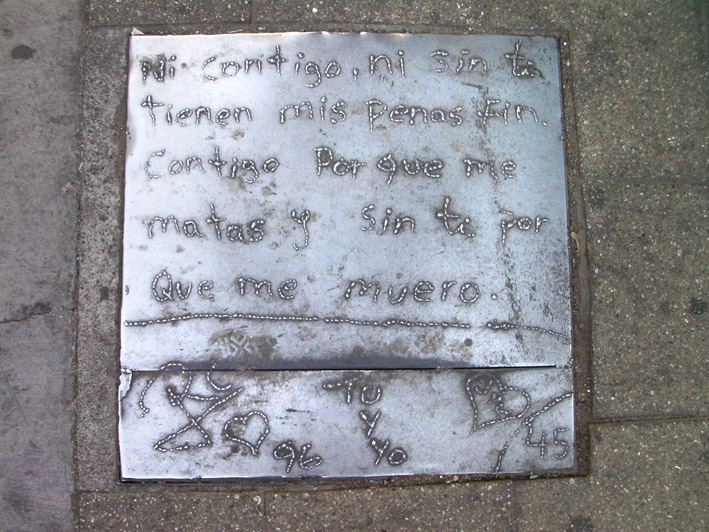 Ni contigo, ni sin ti
tienen mis penas fin.
Contigo Por que me
matas y sin ti por
Que me muero.
TU
y
yo
96
45